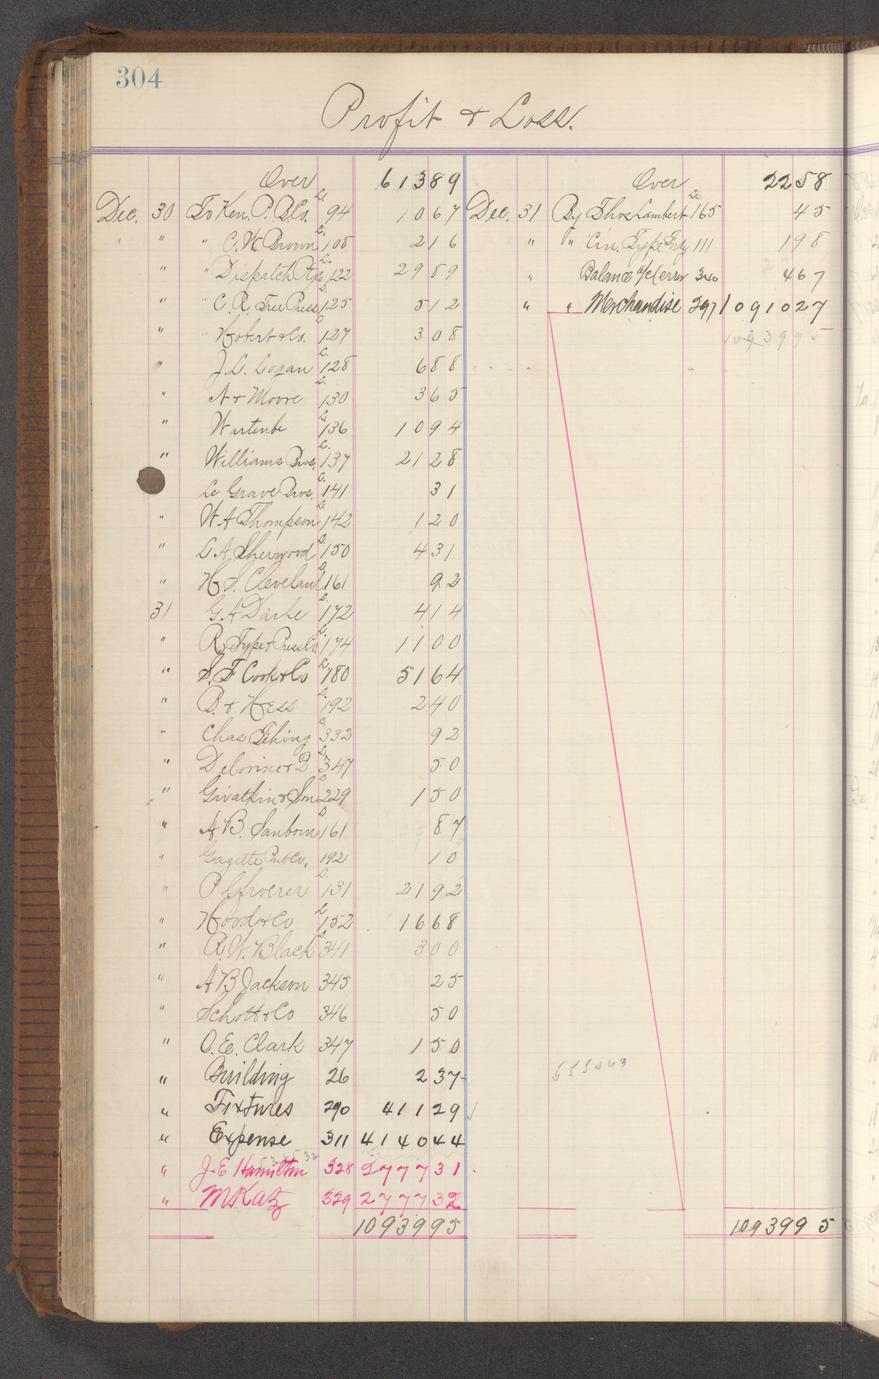 304
Profit & Loss.
Over 613 89
Dec. 30 To Ken. P. B. Co. L. 94 10 67
" " " C. W. Brown L. 108 2 16
" " Dispatch L. 122 29 89
" " C. R. Free Press L. 125 5 12
" " Hobert & Co. L. 127 3 08
" J. L. Logan L. 128 6 88
" A & Moore L. 130 3 65
" L. 136 10 94
" Williams Bros. L. 137 21 28
Le Grave Bros. L. 141 31
" W A Thompson L. 142 1 20
" L. A. Sherwood L. 150 4 31
" H. S. Cleveland L. 161 92
31 G. A. L. 172 4 14
" R. Type & Press Co. L. 174 11 00
" S. F. Cook & Co L. 180 51 64
" B. & Hess L. 192 2 40
" Chas L. 332 92
" L. 347 50
" & Son L. 229 1 50
" A. B. Sanborn L. 161 87
" Gazette Pub Co. 192 10
" L. 131 21 92
" Hood & Co L. 152 16 68
" R. W. Black L. 341 3 00
" A B Jackson 345 25
" Schott & Co 346 50
" O. E. Clark 347 1 50
" Building 26 2 37
" Fixtures 290 411 29
" Expense 311 4140 44
" J. E Hamilton 328 2777 31
" M Katz 329 2777 32
10939 95
Over 22 58
Dec. 31 By Thos Lambert L. 165 45
" " Cin. Type Fdy 111 1 98
" Balance a/c error 340 4 67
" " Merchandise 297 10910 27
10939 95
10939 95